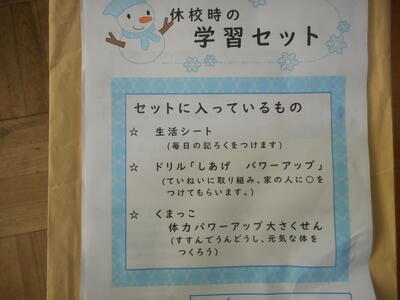 休校時の
学習セット
セットに入っているもの
☆ 生活シート
(毎日の記ろくをつけます)
☆ ドリル「しあげ パワーアップ」
(ていねいに取り組み、家の人に○を
つけてもらいます。)
☆ くまっこ
体力パワーアップ大さくせん
(すすんでうんどうし、元気な体を
つくろう)